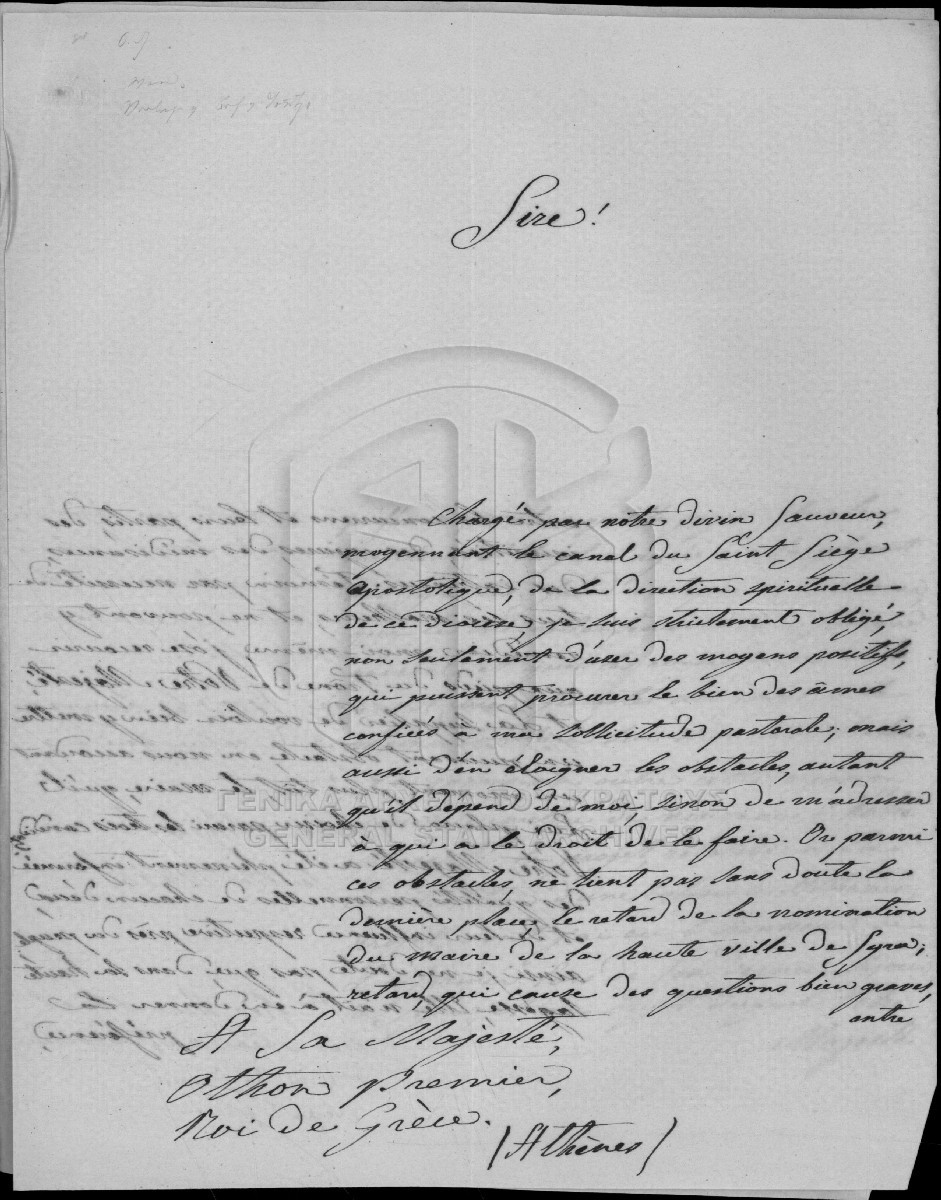 Sire!
Chargé par notre divin Sauveur,
moyennant le canal du Saint Siège
apostolique, de la direction spirituelle
de ce diocèse, je suis strictement obligé,
non seulement d'user des moyens positifs,
qui puissent procurer le bien des âmes
confiées à ma sollicitude pastorale; mais
aussi d'en éloigner les obstacles, autant
qu'il depend de moi, sinon de m'adresser
à qui a le droit de le faire. Or parmi
ces obstacles, ne tient pas sans doute la
dernière place, le retard de la nomination
du maire de la haute ville de Syra;
retard, qui cause des questions bien graves,
entre
A Sa Majesté,
Othon Premier,
Roi de Grèce.
(Athènes)
ΓΕΝΙΚΑ ΑΡΧΕΙΑ ΤΟΥ ΚΡΑΤΟΥΣ
GENERAL STATE ARCHIVES